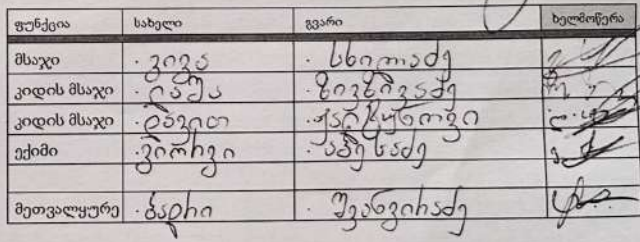 ფუნქცია სახელი გვარი ხელმოწერა
მსაჯი გივა სხილაძე
კიდის მსაჯი ლაშა ზივზივაძე
კიდის მსაჯი დავით
ექიმი გიორგი აბესაძე
მეთვალყურე ბადრი შვანგირაძე